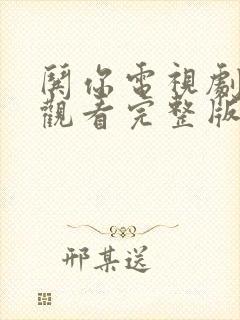 鬨你電視劇
觀看完整版
邢某送